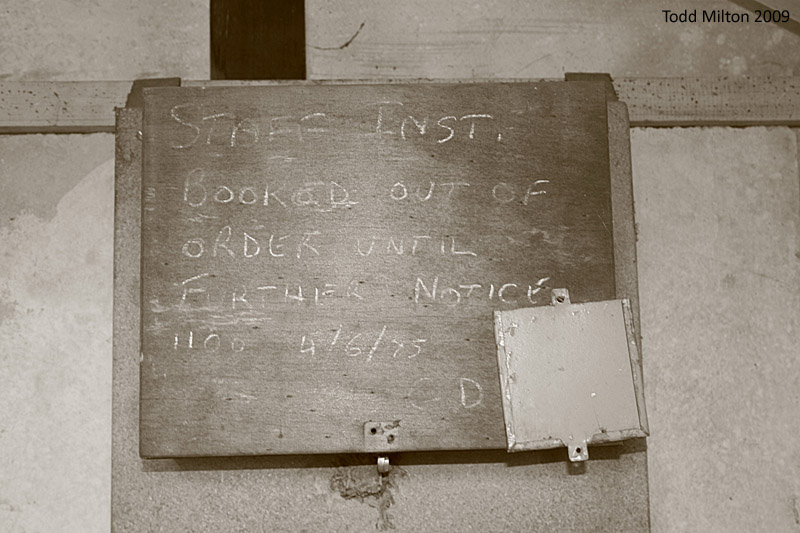 Todd Milton 2009
STAFF INST.
BOOKED OUT OF
ORDER UNTIL
FURTHER NOTICE
1100 4/6/75
D